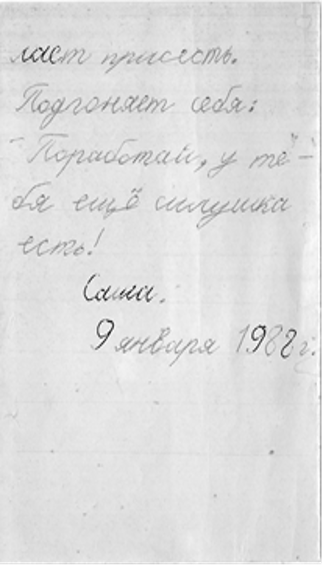 ласт присесть.
Подгоняет себя:
"Поработай, у те-
бя ещё силушка
есть!
Саша.
9 января 1988 г.